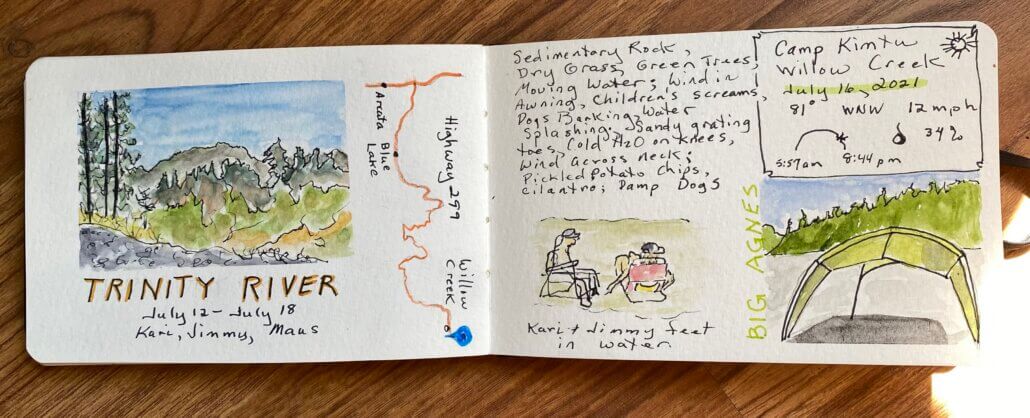 TRINITY RIVER
July 12 - July 18
Kari, Jimmy, Maus
Arcata
Blue
Lake
Highway 299
Willow
Creek
Sedimentary Rock,
Dry Grass, Green Trees,
Moving Water; Wind in
Awning, Children's screams,
Dogs Barking, Water
Splashing; Sandy grating
toes, Cold H2O on knees,
Wind Across neck;
Pickled Potato Chips,
Cilantro; Damp Dogs
Kari + Jimmy feet
in water
Camp Kimtu
Willow Creek
July 16, 2021
81° WNW 12 mph
34%
5:57am 8:44pm
BIG AGNES